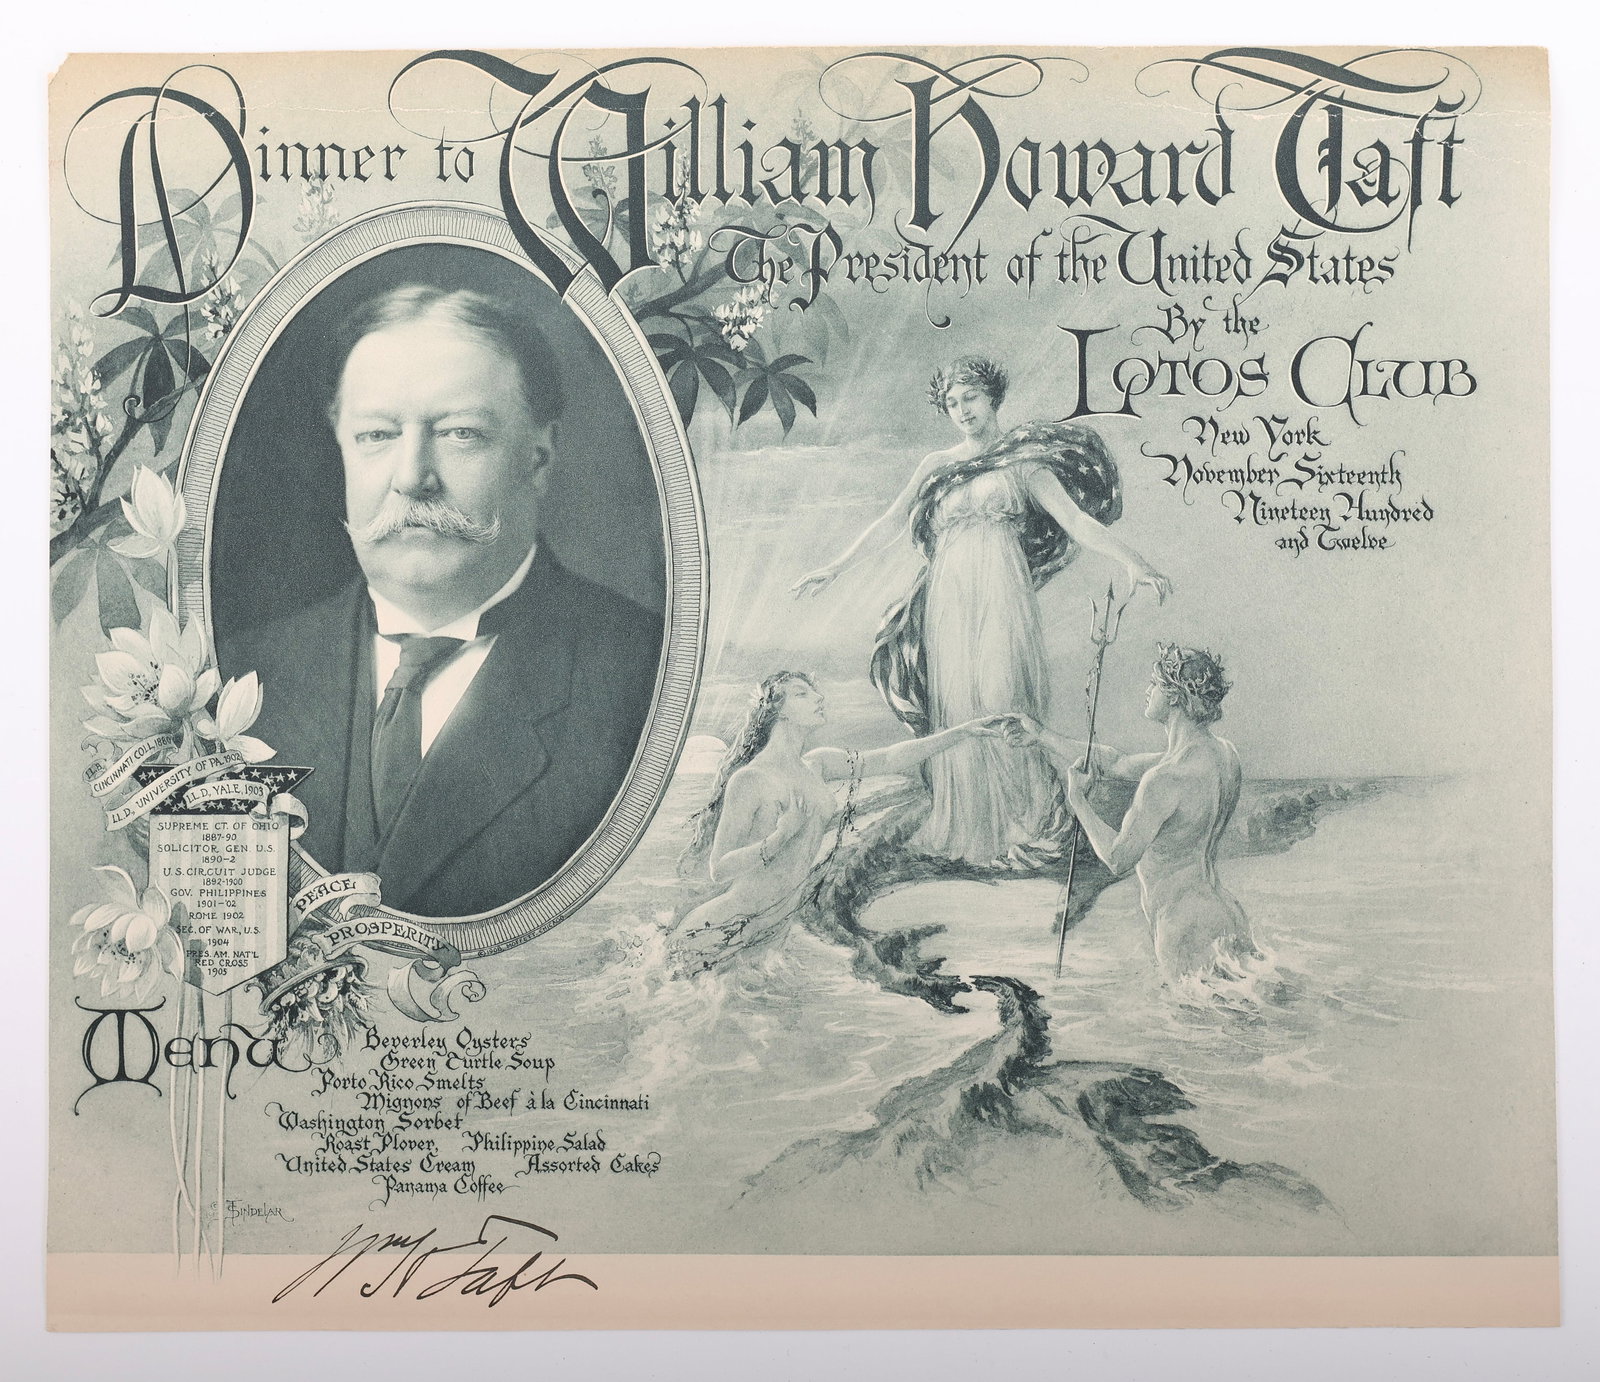 Dinner to William Howard Taft
The President of the United States
By the
Lotos Club
New York
November Sixteenth
Nineteen Hundred
and Twelve
LL.B. CINCINNATI COLL. 1880
LL.D., UNIVERSITY OF PA. 1902
LL.D., YALE, 1903
SUPREME CT. OF OHIO
1887-90
SOLICITOR GEN. U.S.
1890-2
U.S. CIRCUIT JUDGE
1892-1900
GOV. PHILIPPINES
1901-'02
ROME 1902
SEC. OF WAR, U.S.
1904
PRES. AM. NAT'L
RED CROSS
1905
PEACE
PROSPERITY
© 1908, MOFFETT, CHICAGO
Menu
Beverley Oysters
Green Turtle Soup
Porto Rico Smelts
Mignons of Beef à la Cincinnati
Washington Sorbet
Roast Plover, Philippine Salad
United States Cream Assorted Cakes
Panama Coffee
SINDELAR
Wm H Taft